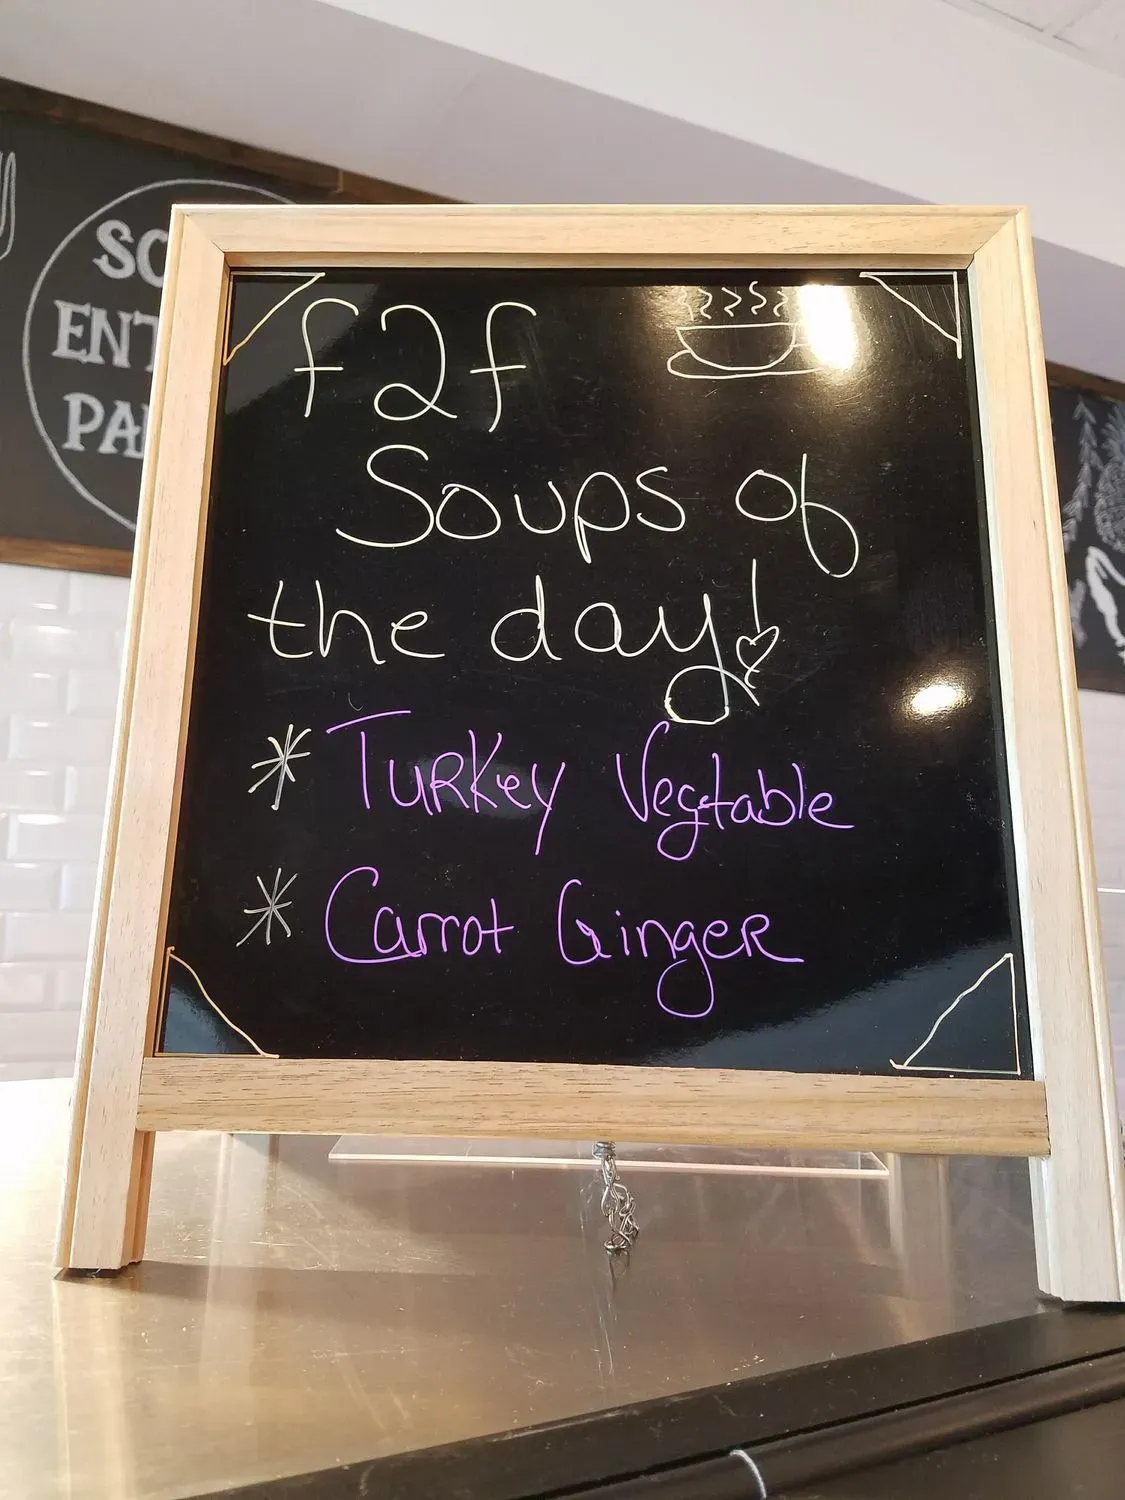 f2f
Soups of
the day!
* Turkey Vegtable
* Carrot Ginger
SO
ENT
PA